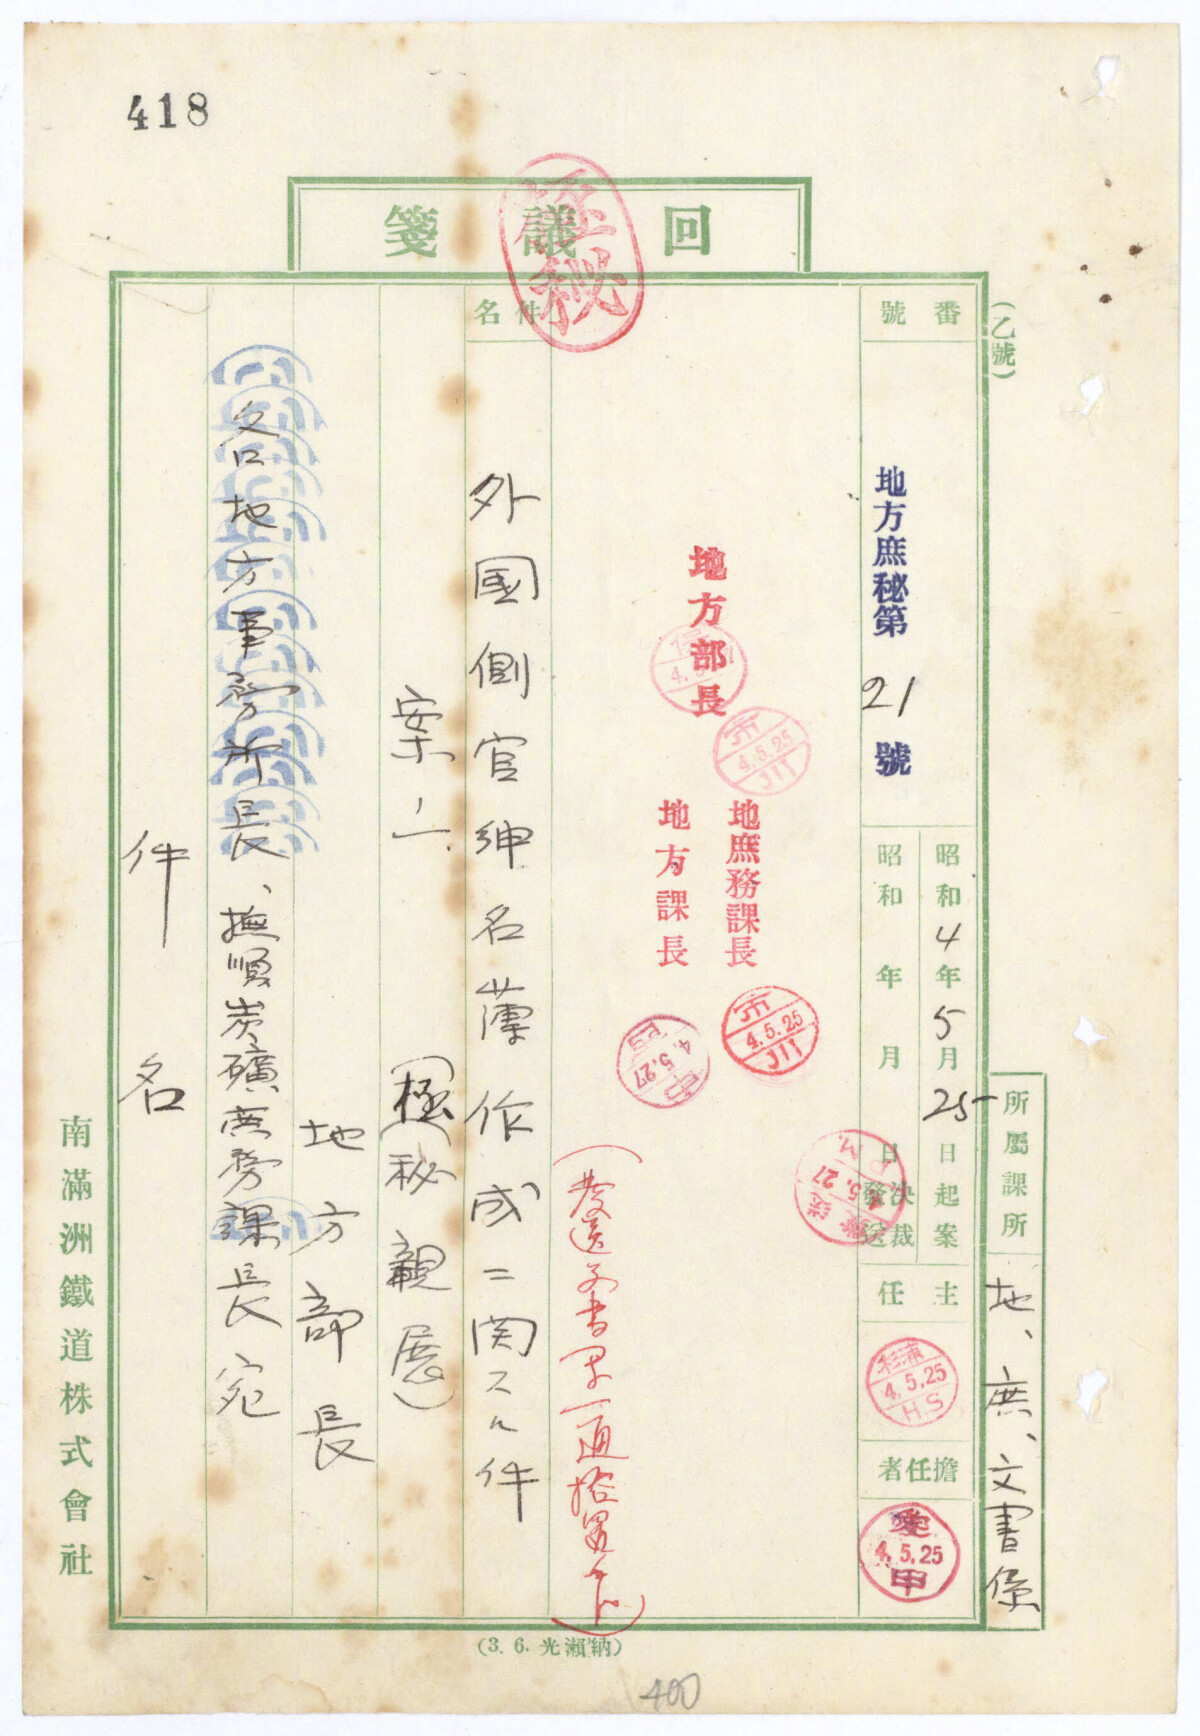 418
回議箋
極秘
(乙號)
番號
地方庶秘第21號
昭和4年5月25日起案
昭和 年 月 日決裁發送
所屬課所
地、庶、文書係
主任
杉浦
4.5.25
H.S
擔任者
4.5.25
地方部長
市
4.5.25
川
地庶務課長
地方課長
市
4.5.25
川
4.5.27
5.27
P.M.
件名
外國側官紳名薄作成ニ関スル件
案ノ一
(極秘親展)
地方部長
各地方事務所長、撫順炭礦庶務課長宛
件名
南滿洲鐵道株式會社
(3.6.光瀨納)
400